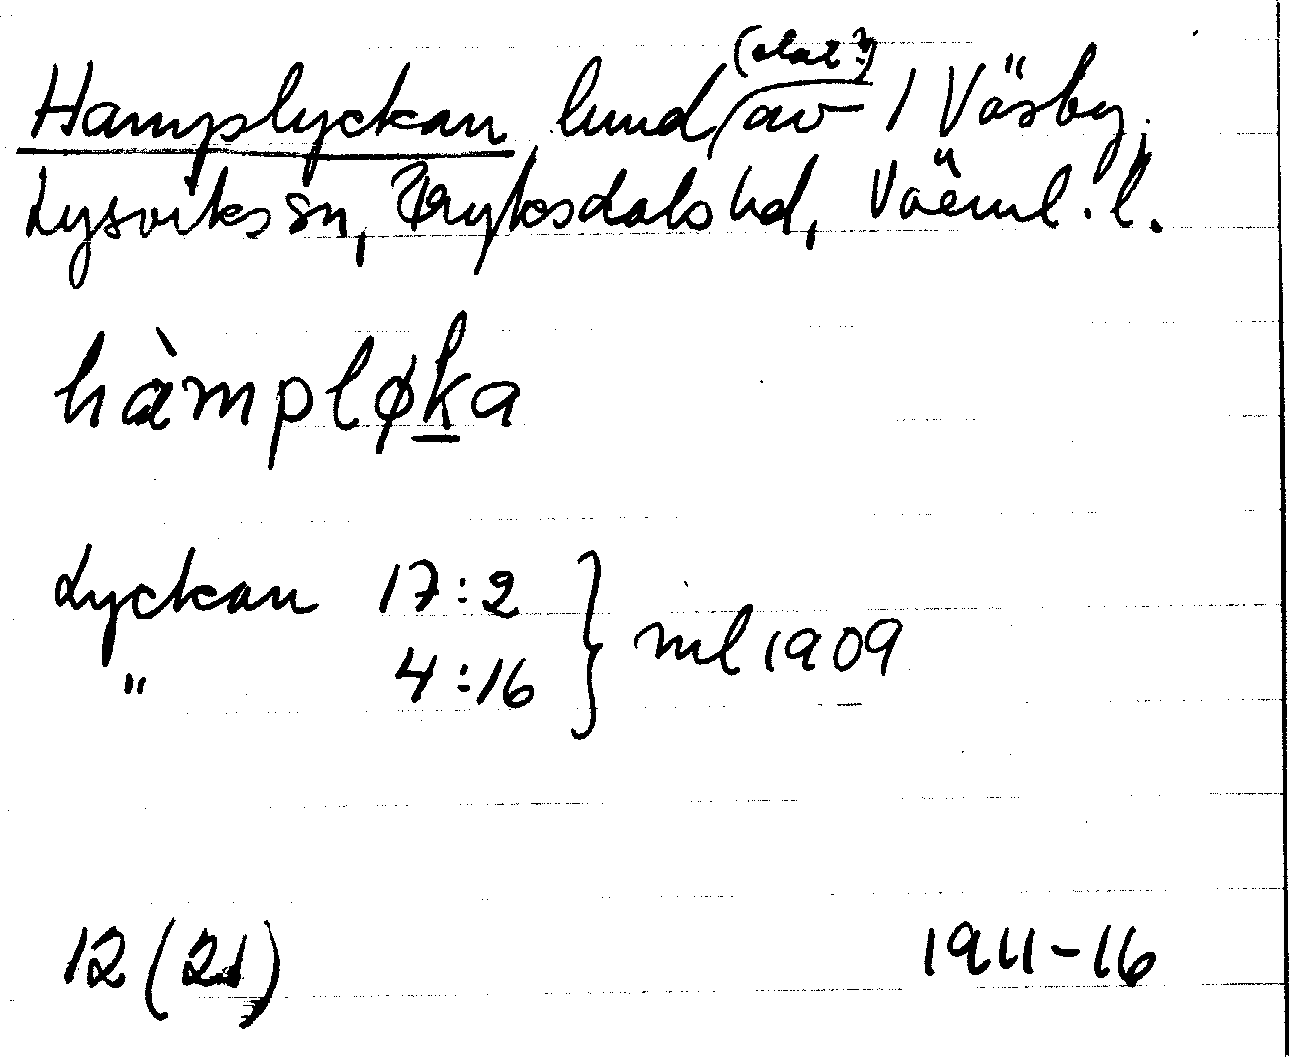 Hamplyckan lund (slut?) av 1 Väsby,
Lysviks sn, Fryksdals hd, Värml. l.
hàmpløka
Lyckan 17:2
" 4:16 } ml 1909
12 (21) 1911-16